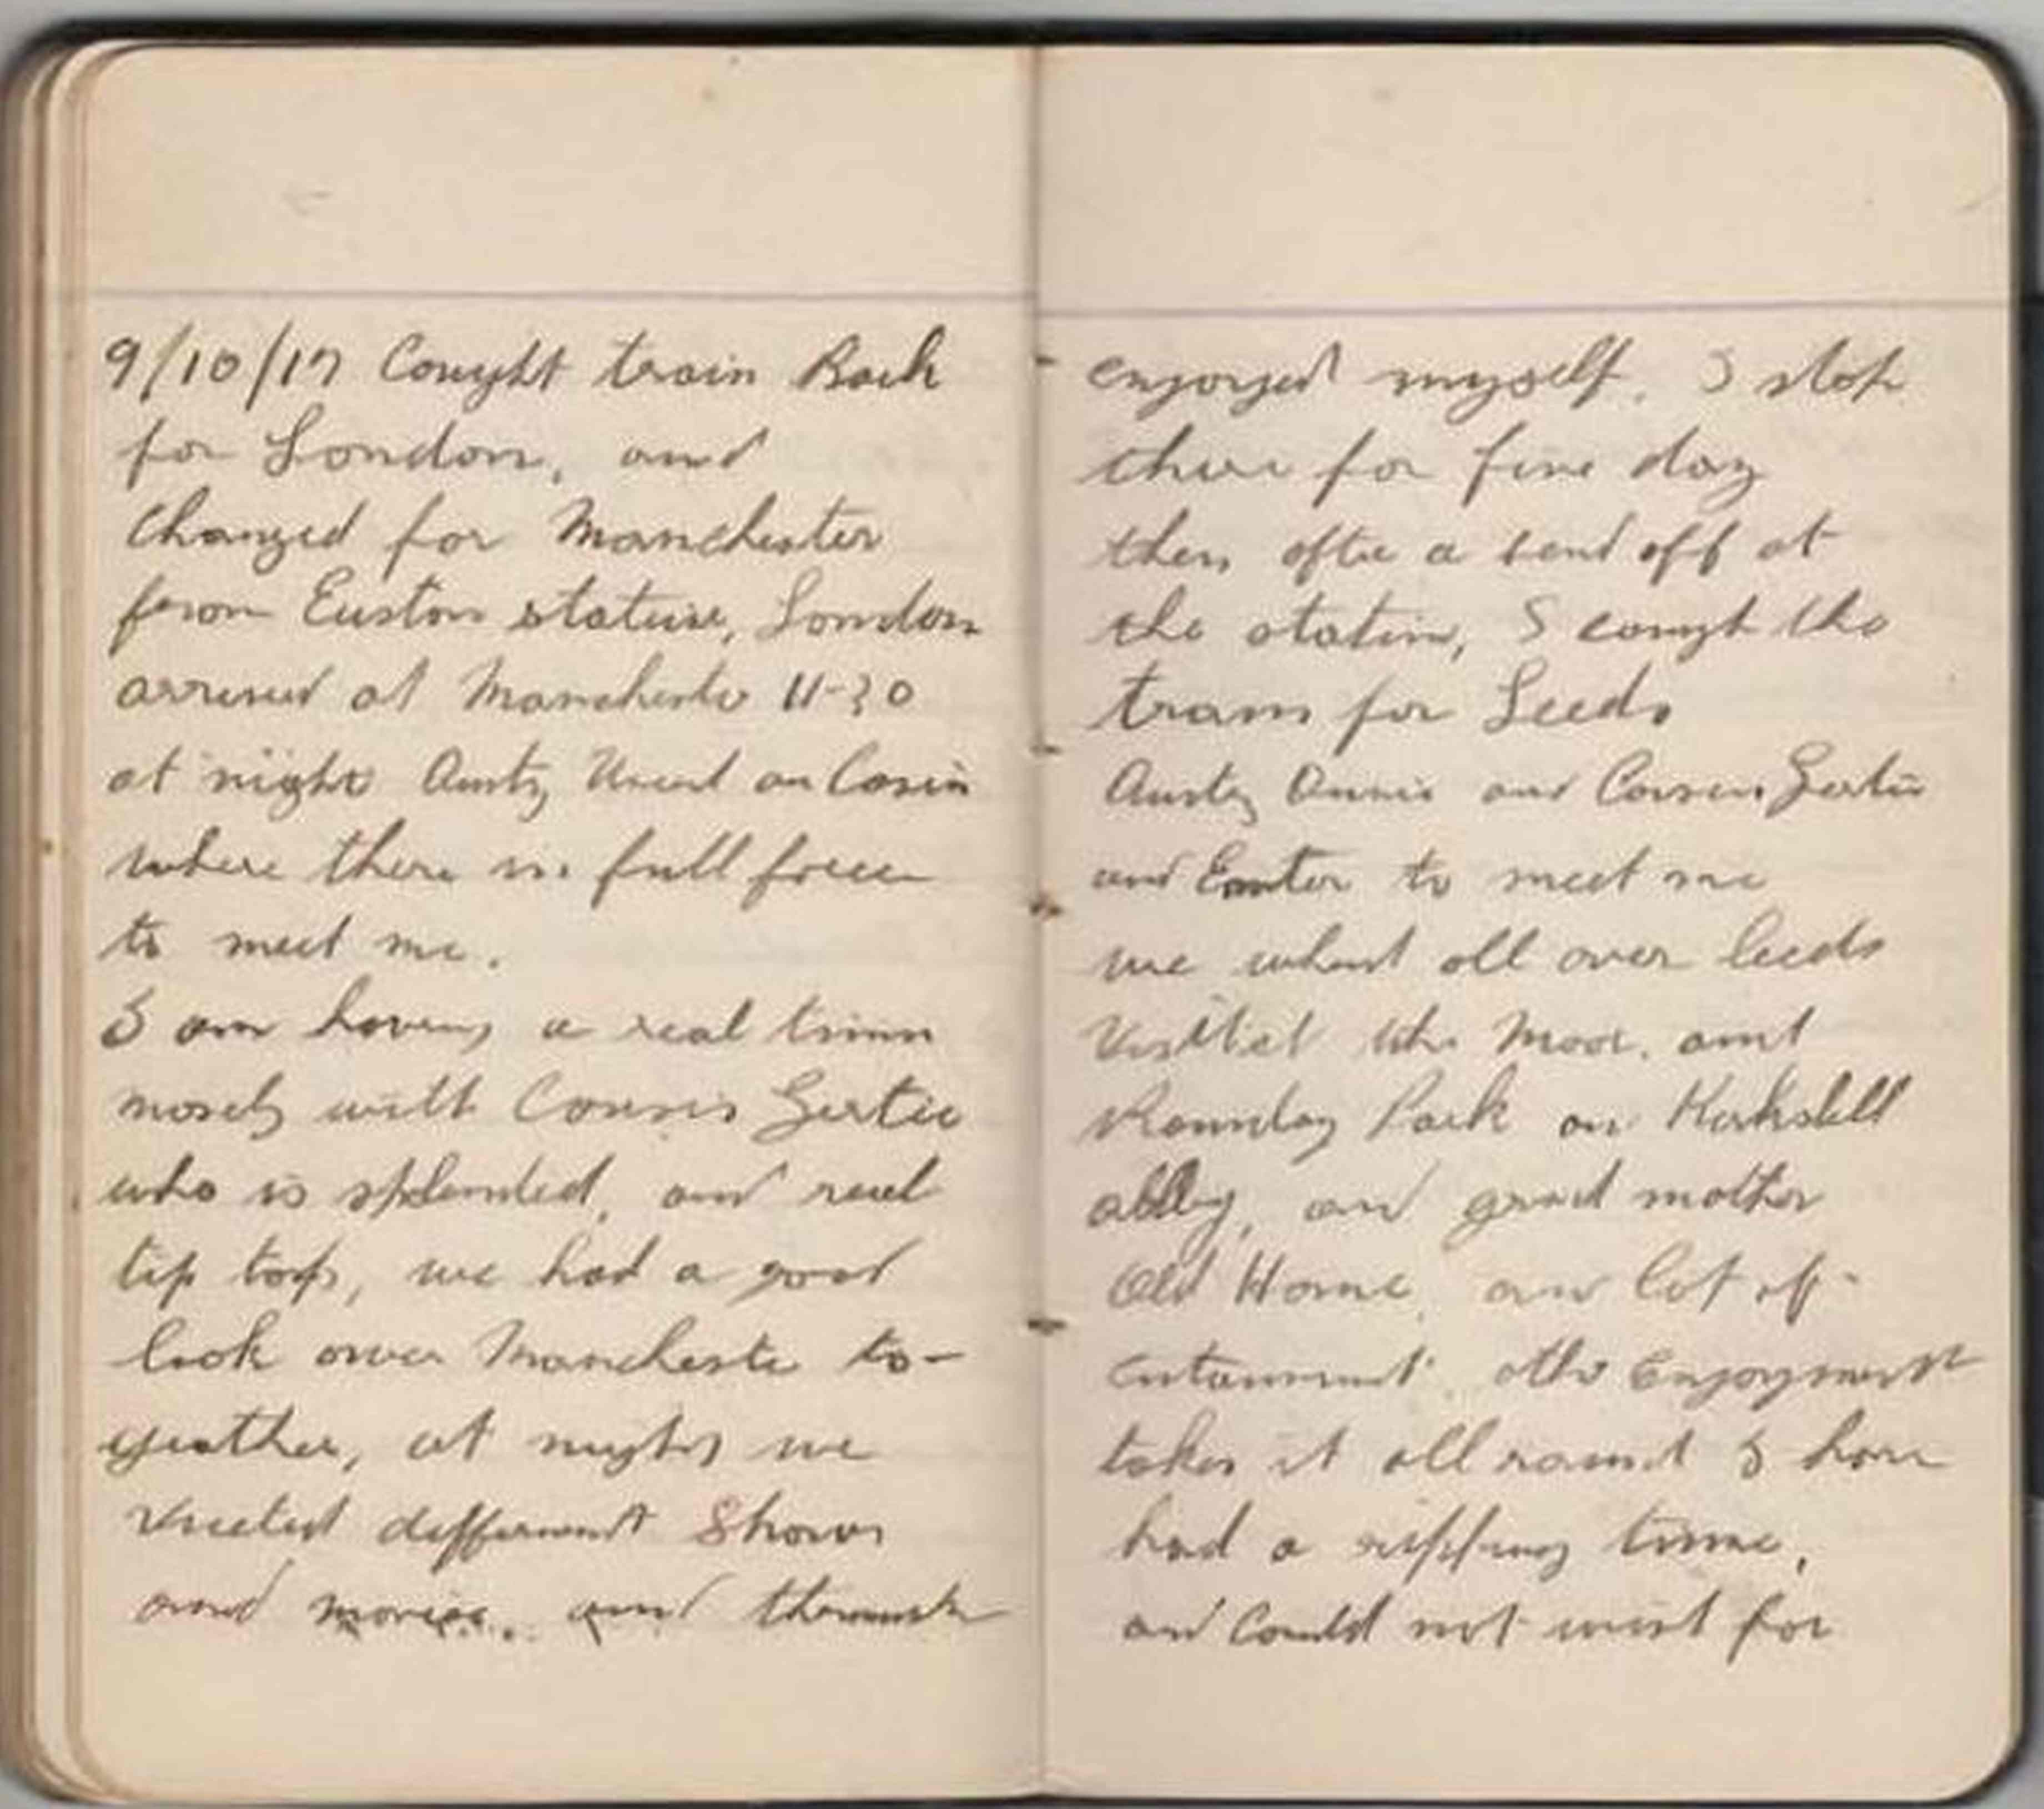 9/10/17 Cought train Back
for London, and
Changed for Manchester
from Euston statuin, London
arrived at Manchester 11-30
at night Aunty Uncul an Cosin
where there in full force
to meet me.
I am having a real time
mosely with Cousin Gertie
who is splended, and real
tip top, we had a good
look over Manchester to-
geather, at nights we
viseted defferent Shows
and movies, and
enjoyed myself. I stop
there for five day
then after a send off at
the station, I cought the
train for Leeds
Aunty Annie and Cousin Gertie
and to meet me
we whent all over Leeds
Visitet the Moor, and
Rounday Park an Kirkstell
abbey, and grand mother
Old Home, an lot of
other Enjoyment
takes it all round I have
had a ripping time,
and Could not wist for